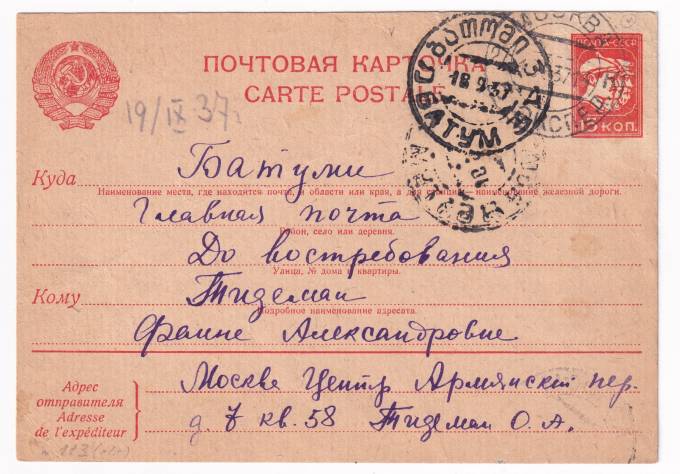 ПОЧТОВАЯ КАРТОЧКА
CARTE POSTALE
19/IX 37г
18.9.37
БАТУМ
МОСКВА
ПОЧТА СССР
КОП.
Куда Батуми
Наименование места, где находится почта, и области или края, а для станции — наименование железной дороги.
Главная почта
Район, село или деревня.
До востребования
Улица, № дома и квартиры.
Кому Тидеман
Подробное наименование адресата.
Фаине Александровне
Адрес
отправителя
Adresse
de l'expéditeur
Москва Центр Армянский пер.
д. 7 кв. 58 Тидеман О. А.